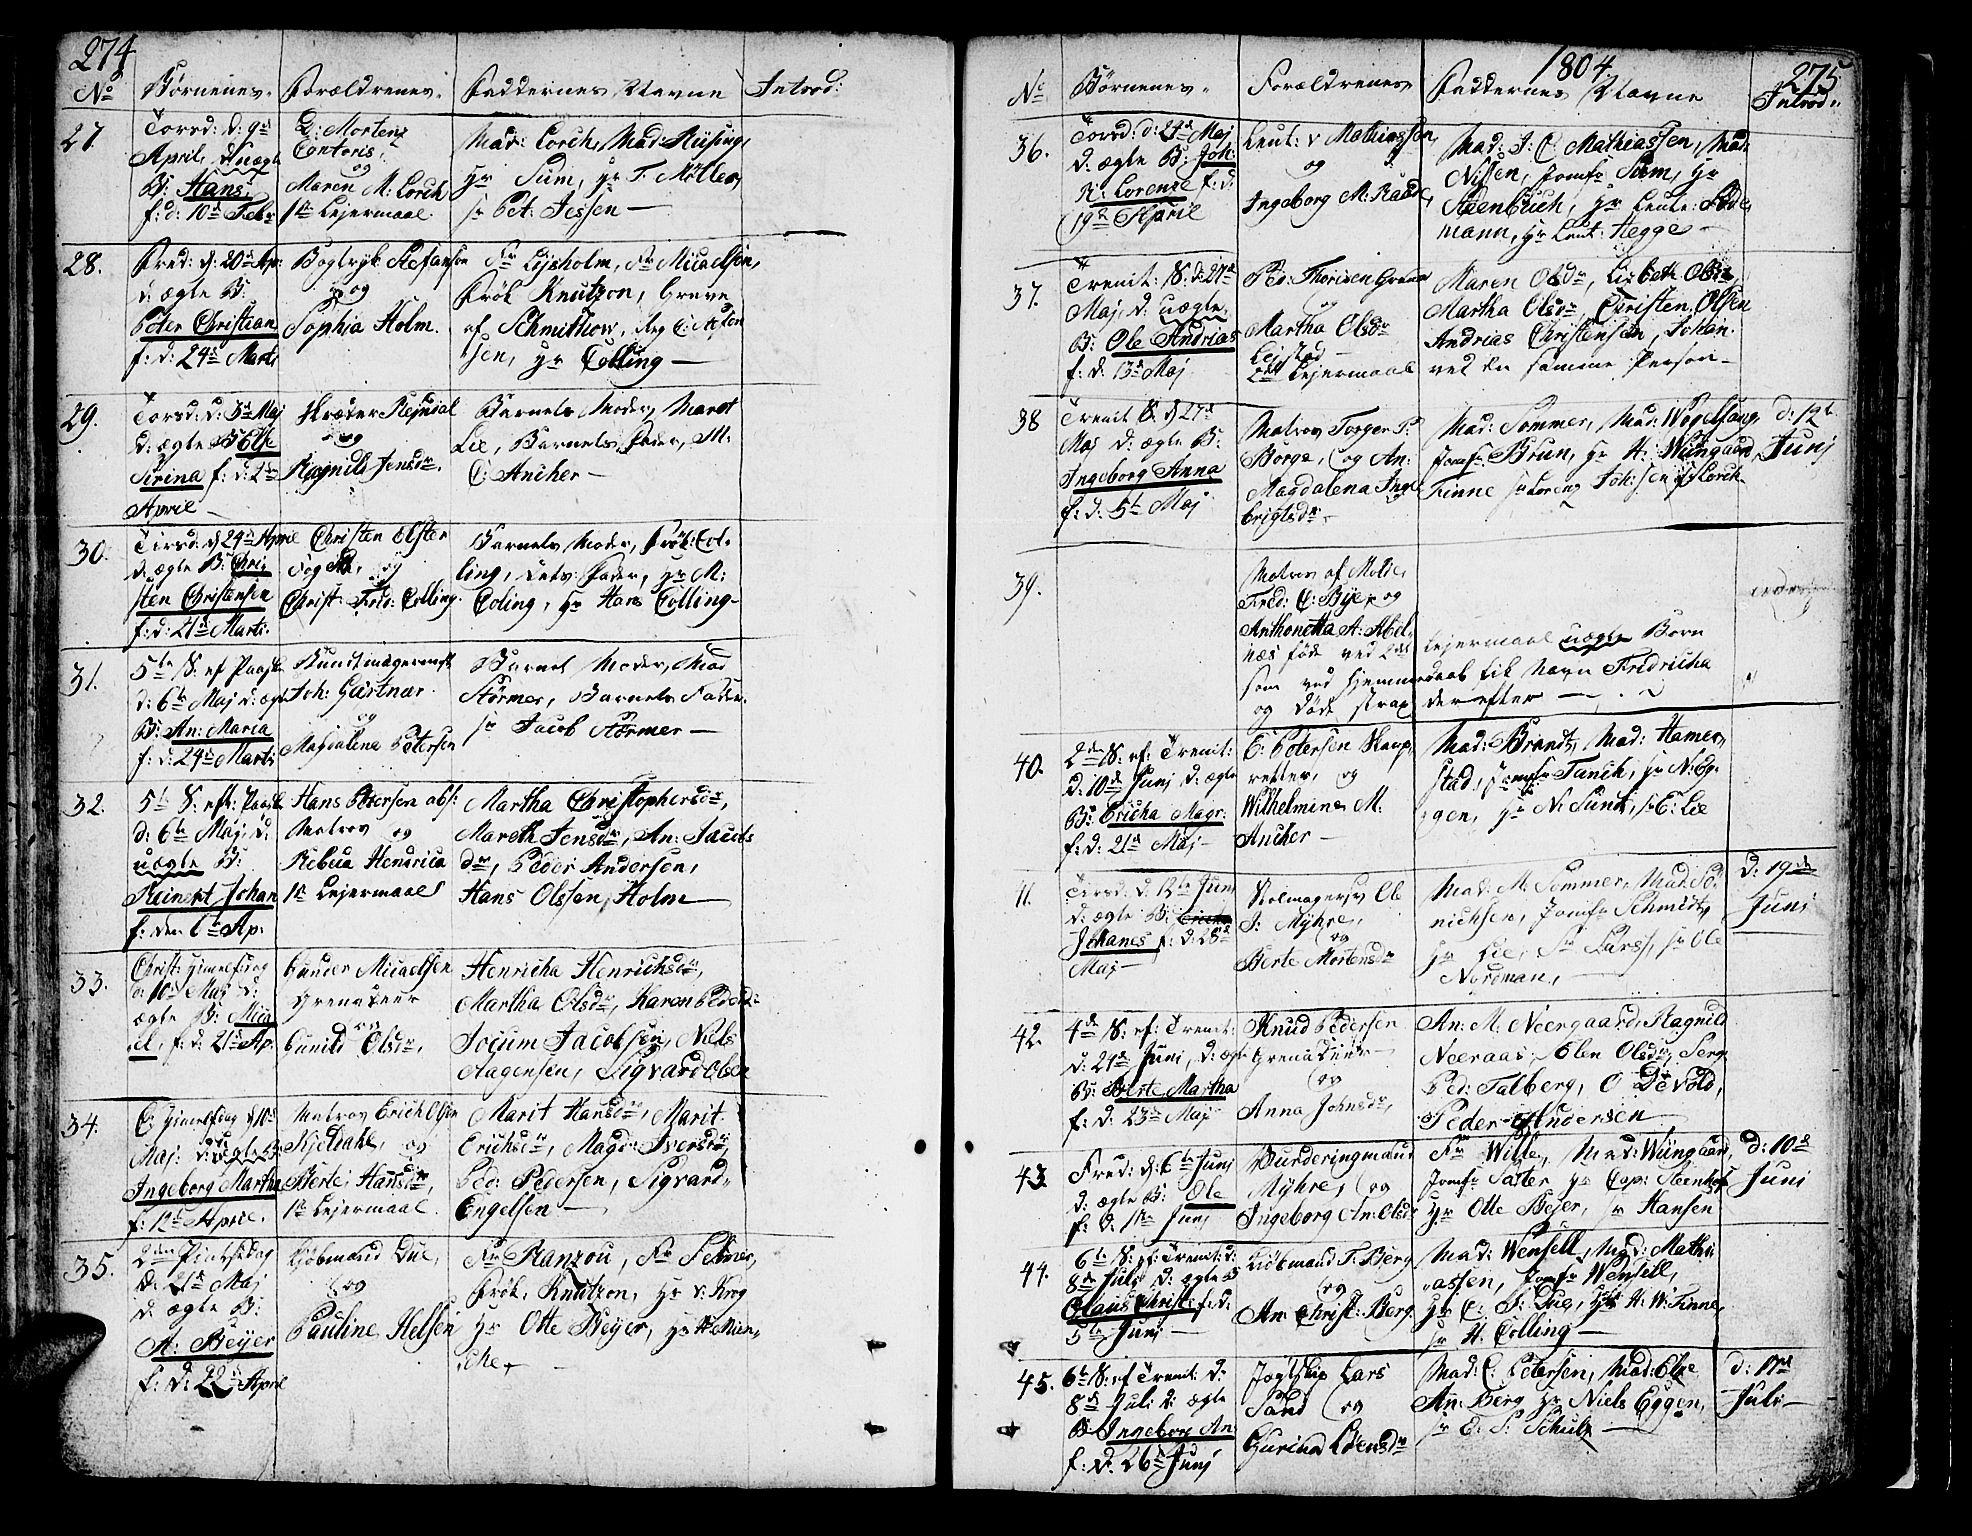 274
No Børnenes Forældrenes Faddernes Navne Introd:
27. Torsd: d: 9de
April, d: uægte
B: Hans,
f: d: 10de Febr
L: Mortenz
Contoris,
og
Maren M: Lorch
1te Lejermaal.
Mad: Lorch, Mad: Rüsing,
Hr Sum, Hr T. Møller,
Sr Pet: Jessen —
28. Fred: d: 20de Apr:
d: ægte B:
Peter Christian
f: d: 24de Marti
Bogtryk: Stefansen
og
Sophia Holm.
Fr Lysholm, Fr Micaelsen,
Frøk Knutzon, Greve
af Schmittow,
sen, Hr Colling —
29. Torsd: d: 3de Maj
d: ægte B: Else
Sirina f: d: 2den
April —
Skræder Rejnial
og
Ragnild Jensdr.
Barnets Moder, Maret
Lie, Barnets Fader, M:
C: Ancher —
30. Tirsd: d: 24de April
d: ægte B: Chri,
sten Christensen
f: d: 21de Marti.
Christen Elster
Foged, og
Christ: Fred: Colling.
Barnets Moder, Frøk: Col-
ling, Lets: Fader, Hr M:
Coling, Hr Hans Colling—
31. 5te S: ef Paaske
d: 6te Maj d: ægte
B: An: Maria
f: d: 24de Marti
Buntmagermst
Joh: Gärtnar
og
Magdalena Petersen
Barnets Moder, Mad
Størmer, Barnets Fader.
Sr Jacob Størmer —
32. 5te S: eft: Paaske
d: 6te Maj d:
uægte B:
Reinert Johan
f: den 6te Ap:
Hans Petersen abs:
Matros og
Rebeca Hendrica
1te Lejermaal
Martha Christophersdr,
Mareth Jensdr, An: Jacobs
dr, Peder Andersen,
Hans Olssen Holm —
33. Christi Himmelfsdag
d: 10de Maj d:
ægte B: Mica
el, f: d: 21de Ap:
Gunder Micaelsen
Grenadeer
og
Gunild Olsdr,
Henricha Henrichsdr,
Martha Olsdr, Karen Pedersd:
Jocum Jacobsen, Niels
Aagensen, Sigvard Olsen
34. C: Himmelfsdag d: 10de
Maj: d: uægte B:
Ingeborg Martha
f: 12te April.
Matros Erich Olsen
og
Berte: Hansdr,
1te Lejermaal.
Marit Hansdr, Marit
Erichsdr, Magd: Iversdr,
Ped: Pedersen, Sigvard
Engelsen —
35. 2den Pintsedag
d: 21de Maj
d: ægte B:
A: Beijer
f: d: 22de April
Kjøbmand Due,
og
Pauline Nelsen
Fr Ranzou, Fr Selmer,
Frøk: Knutzon, Hr v: Krog
Hr Otte Beijer, Hr H: Mün,
che —
1804. 275
No Børnenes Forældrenes Faddernes Navne Introd:
36. Torsd: d: 24de Maj
d: ægte B: Joh:
N: Lorenze f: d:
19de April
Leut: v Mathiassen,
og
Ingeborg M: Raade,
Mad: J: C: Mathiassen, Mad:
Nissen, Jomfr Sum, Hr
Steenbuch, Hr Leute: Føde
mann, Hr Leut: Hegge —
37. Trenit: S: d: 27de
Maj, d: uægte,
B: Ole Andrias
f: d: 13de Maj
Ped: Thorisen Gren
og
Martha Olsdr
Lejstad —
2det Lejermaal
Maren Olsdr, Lisbeth Olsdr,
Martha Olsdr Christen Olsen
Andrias Christensen, Johan
ved den samme Person —
38 Trenit S: d: 27de
Maj d: ægte B:
Ingeborg Anna
f: d: 5te Maj
Matros Torger P:
Borge, og An:
Magdalena Inge
brigtsdr.
Mad: Sommer, Mad: Wogelsang,
Jomfr Brun, Hr H: Wüngaard,
Finne Sr Lorenz Joh:sen Lorck.
d: 12te
Junj
39. Matros af Molde,
Fred: C: Bije, og
Anthonetta A: Abel-
næs føde ved 2det Lejermaal uægte Barn
som ved Hjemmedaab fik Navn Fredricha
og døde strax derefter —
40. 2den S: ef: Trenit:
d: 10de Junj d: ægte
B: Ericha Magr:
f: d: 21de Maj —
C: Petersen Skarp,
retter, og
Wilhelmine M:
Ancher —
Mad: Brandt, Mad: Hamer,
stad, Jomfr Tanch, Hr N: Eg-
gen, Hr N: Sund, Sr E: Lie
11. Tirsd: d: 12te Junj
d: ægte B:
Johanes f: d: 28de
Maj —
Stolmagersv Ole
J: Myhre,
og
Berte Mortensdr
Mad: M: Sommer, Mad: Dö,
nichsen, Jomfr Schmidt,
Hr Lie, Sr Larss, Sr Ole
Nordman. —
d: 19de
Junj
42. 4de S: ef: Trenit:
d: 24de Junj, d: ægte
B: Berte Martha
f: d: 23de Maj
Knud Pedersen
Grenadeer —
og
Anna Johnsdr,
An: M: Neergaard, Ragnild
Neeraas, Elen Olsdr, Serg
Ped: Talberg, O Devold,
Peder Andersen
43. Fred: d: 6te Junj
d: ægte B: Ole
f: d: 1te Junj
Vurderingmand
Myhre, og
Ingeborg An: Olsdr
Fr Wille, Mad: Wüngaard,
Jomfr Sæter Hr Cap: Steenhof
Hr Otte Beijer, Sr Hansen
d: 10de
Junj
44. 6te S: ef: Trenit: d:
8de Juli d: ægte B
Olaus Christ: f: d:
5te Junj —
Kiøbmand T: Berg
og
An Christ: Berg.
Mad: Wensell, Mad: Mathi
assen, Jomfr Wensell,
Hr C: J: Due, Hr H: W: Finne,
Sr H: Colling —
45. 6te S: ef Trenit d:
8de Juli d: ægte
B Ingeborg An:
f: d: 26de Junj
Jøgtskip Lars
Sand og
Gurina Loensdr
Mad: C: Petersen, Mad: Else
An: Berg Hr Niels Eggen,
Sr E. S: Schultz
d: 17de
Juli —